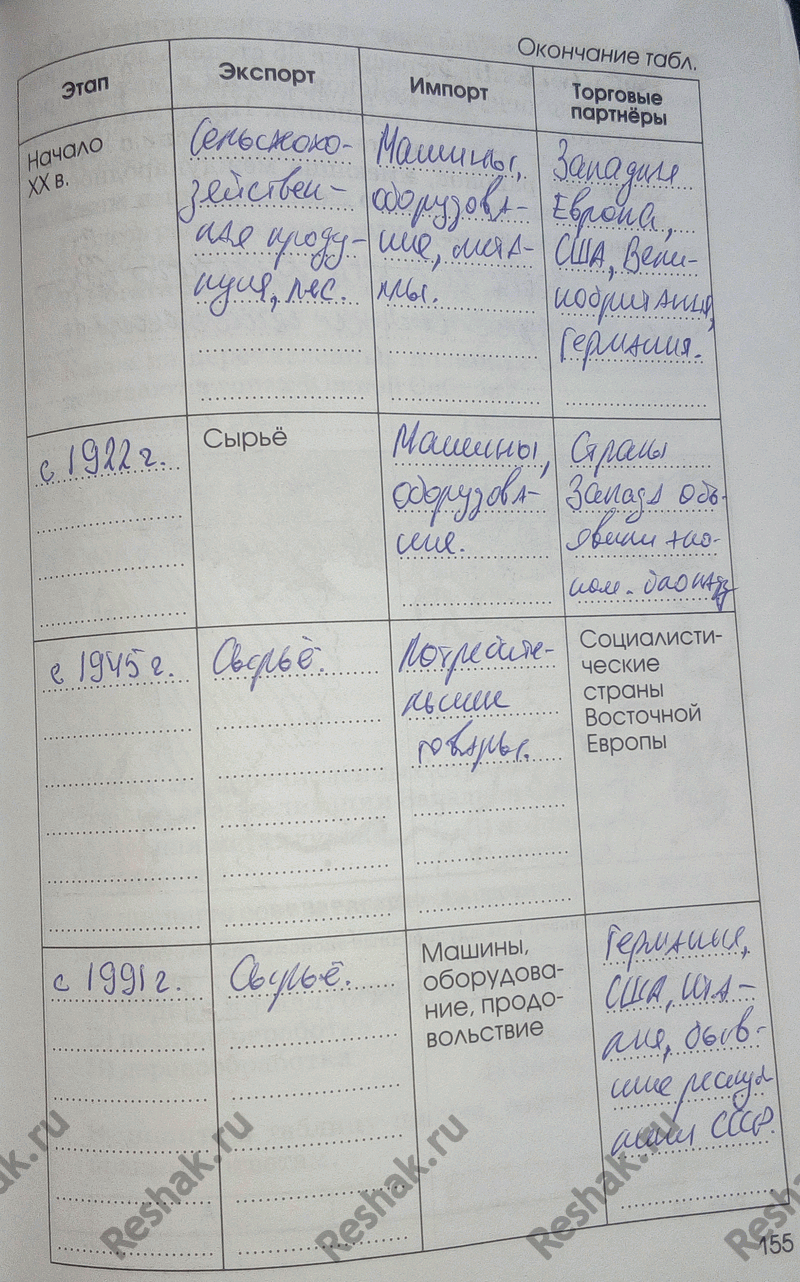 Окончание табл.
Этап
Экспорт
Импорт
Торговые
партнёры
Начало
XX в.
Сельскохо-
зяйствен-
ная проду-
кция, лес.
Машины,
оборудова-
ние, метал-
лы.
Западная
Европа,
США, Вели-
кобритания,
Германия.
с 1922 г.
Сырьё
Машины,
оборудова-
ние.
Страны
Запада объ-
явили эко-
ном. блокаду
с 1945 г.
Сырьё.
Потребите-
льские
товары.
Социалисти-
ческие
страны
Восточной
Европы
с 1991 г.
Сырьё.
Машины,
оборудова-
ние, продо-
вольствие
Германия,
США, Ита-
лия, быв-
шие респуб
лики СССР.
ak.ru
Reshak.ru
Reshak.ru
Reshak.ru
Resha
155